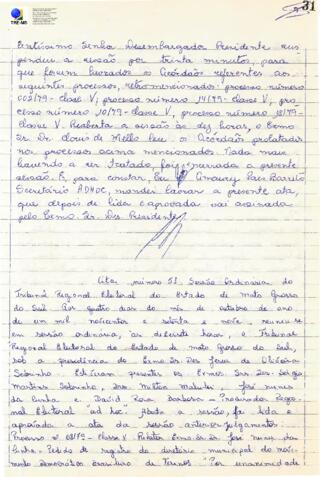 31
TRE-MS
lentíssimo Senhor Desembargador Presidente sus-
pendeu a sessão por trinta minutos, para
que foram lavrados os Acórdãos referentes aos
seguintes processos, retromencionados: processo número
003/79 - classe V, processo número 14/79 - classe V, pro-
cesso número 10/79 - classe V, processo número 18/79 -
classe V. Reaberta a sessão às dez horas, o Exmo
Sr. Dr. de Mello leu os Acórdãos prolatados
nos processos acima mencionados. Nada mais
havendo a ser tratado, foi encerrada a presente
sessão. E, para constar, Eu Amaury Paes Barreto
Secretário ADHOC, mandei lavrar a presente ata,
que depois de lida e aprovada vai assinada
pelo Exmo. Sr. Des. Presidente
Ata número 51. Sessão Ordinária do
Tribunal Regional Eleitoral do Estado de Mato Grosso
do Sul. Aos quatro dias do mês de outubro de ano
de um mil novecentos e setenta e nove, reuniu-se
em sessão ordinária, às dezesete horas, o Tribunal
Regional Eleitoral do Estado de Mato Grosso do Sul,
sob a presidência do Exmo Sr. Des. de Oliveira
Sobrinho. Estiveram presentes os Exmos. Srs. Des. Sérgio
Martins Sobrinho, Drs. Milton Malulei, José Nunes
da Cunha e David Rosa Barbosa - Procurador Regio-
nal Eleitoral "ad hoc". Aberta a sessão, foi lida e
aprovada a ata da sessão anterior. Julgamentos:
Processo nº 08/79 - Classe V. Relator Exmo. Sr. Dr. José Nunes da
Cunha - Pedido de registro do diretório municipal do movi-
mento Democrático Brasileiro de Terenos. "Por unanimidade